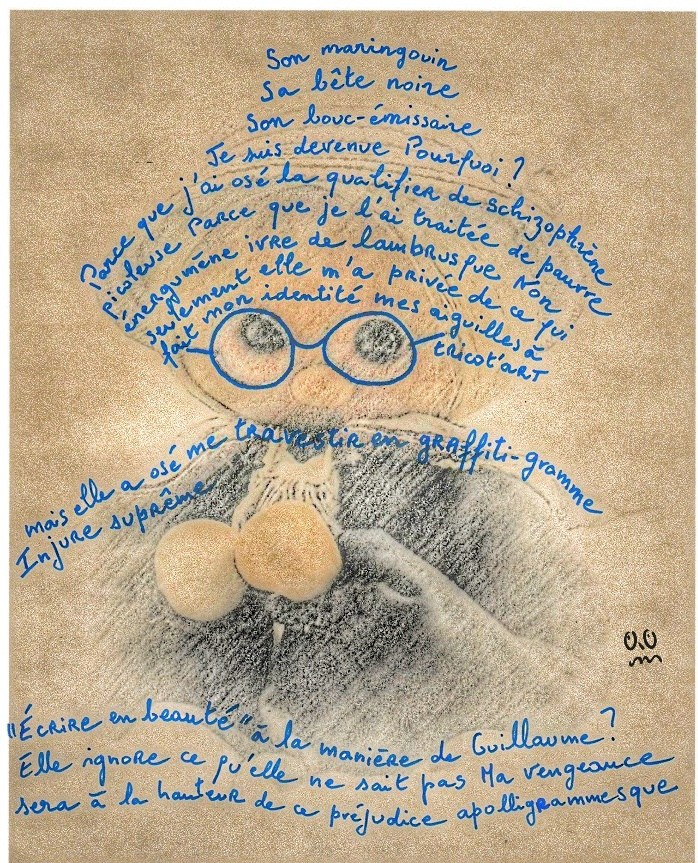 Son maringouin
Sa bête noire
Son bouc-émissaire
Je suis devenue Pourquoi ?
Parce que j'ai osé la qualifier de schizophrène
picoleuse Parce que je l'ai traitée de pauvre
énergumène ivre de lambrusque Non
seulement elle m'a privée de ce qui
fait mon identité mes aiguilles à
tricot'art
mais elle a osé me travestir en graffiti-gramme
Injure suprême
"Écrire en beauté" à la manière de Guillaume ?
Elle ignore ce qu'elle ne sait pas Ma vengeance
sera à la hauteur de ce préjudice apolligrammesque